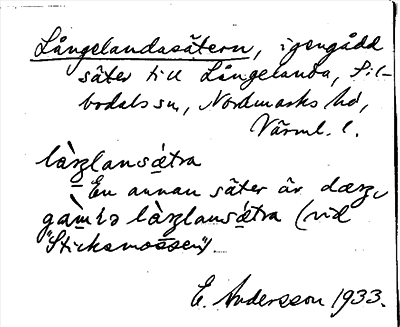 Långelandasätern, igengådd
säter till Långelanda, Sil-
bodals sn, Nordmarks hd,
Värml. l.
làŋlansǽtra
En annan säter är dæŋ
gàmlə làŋlansǽtra (vid
"Sticksmossen").
E. Andersson 1933.